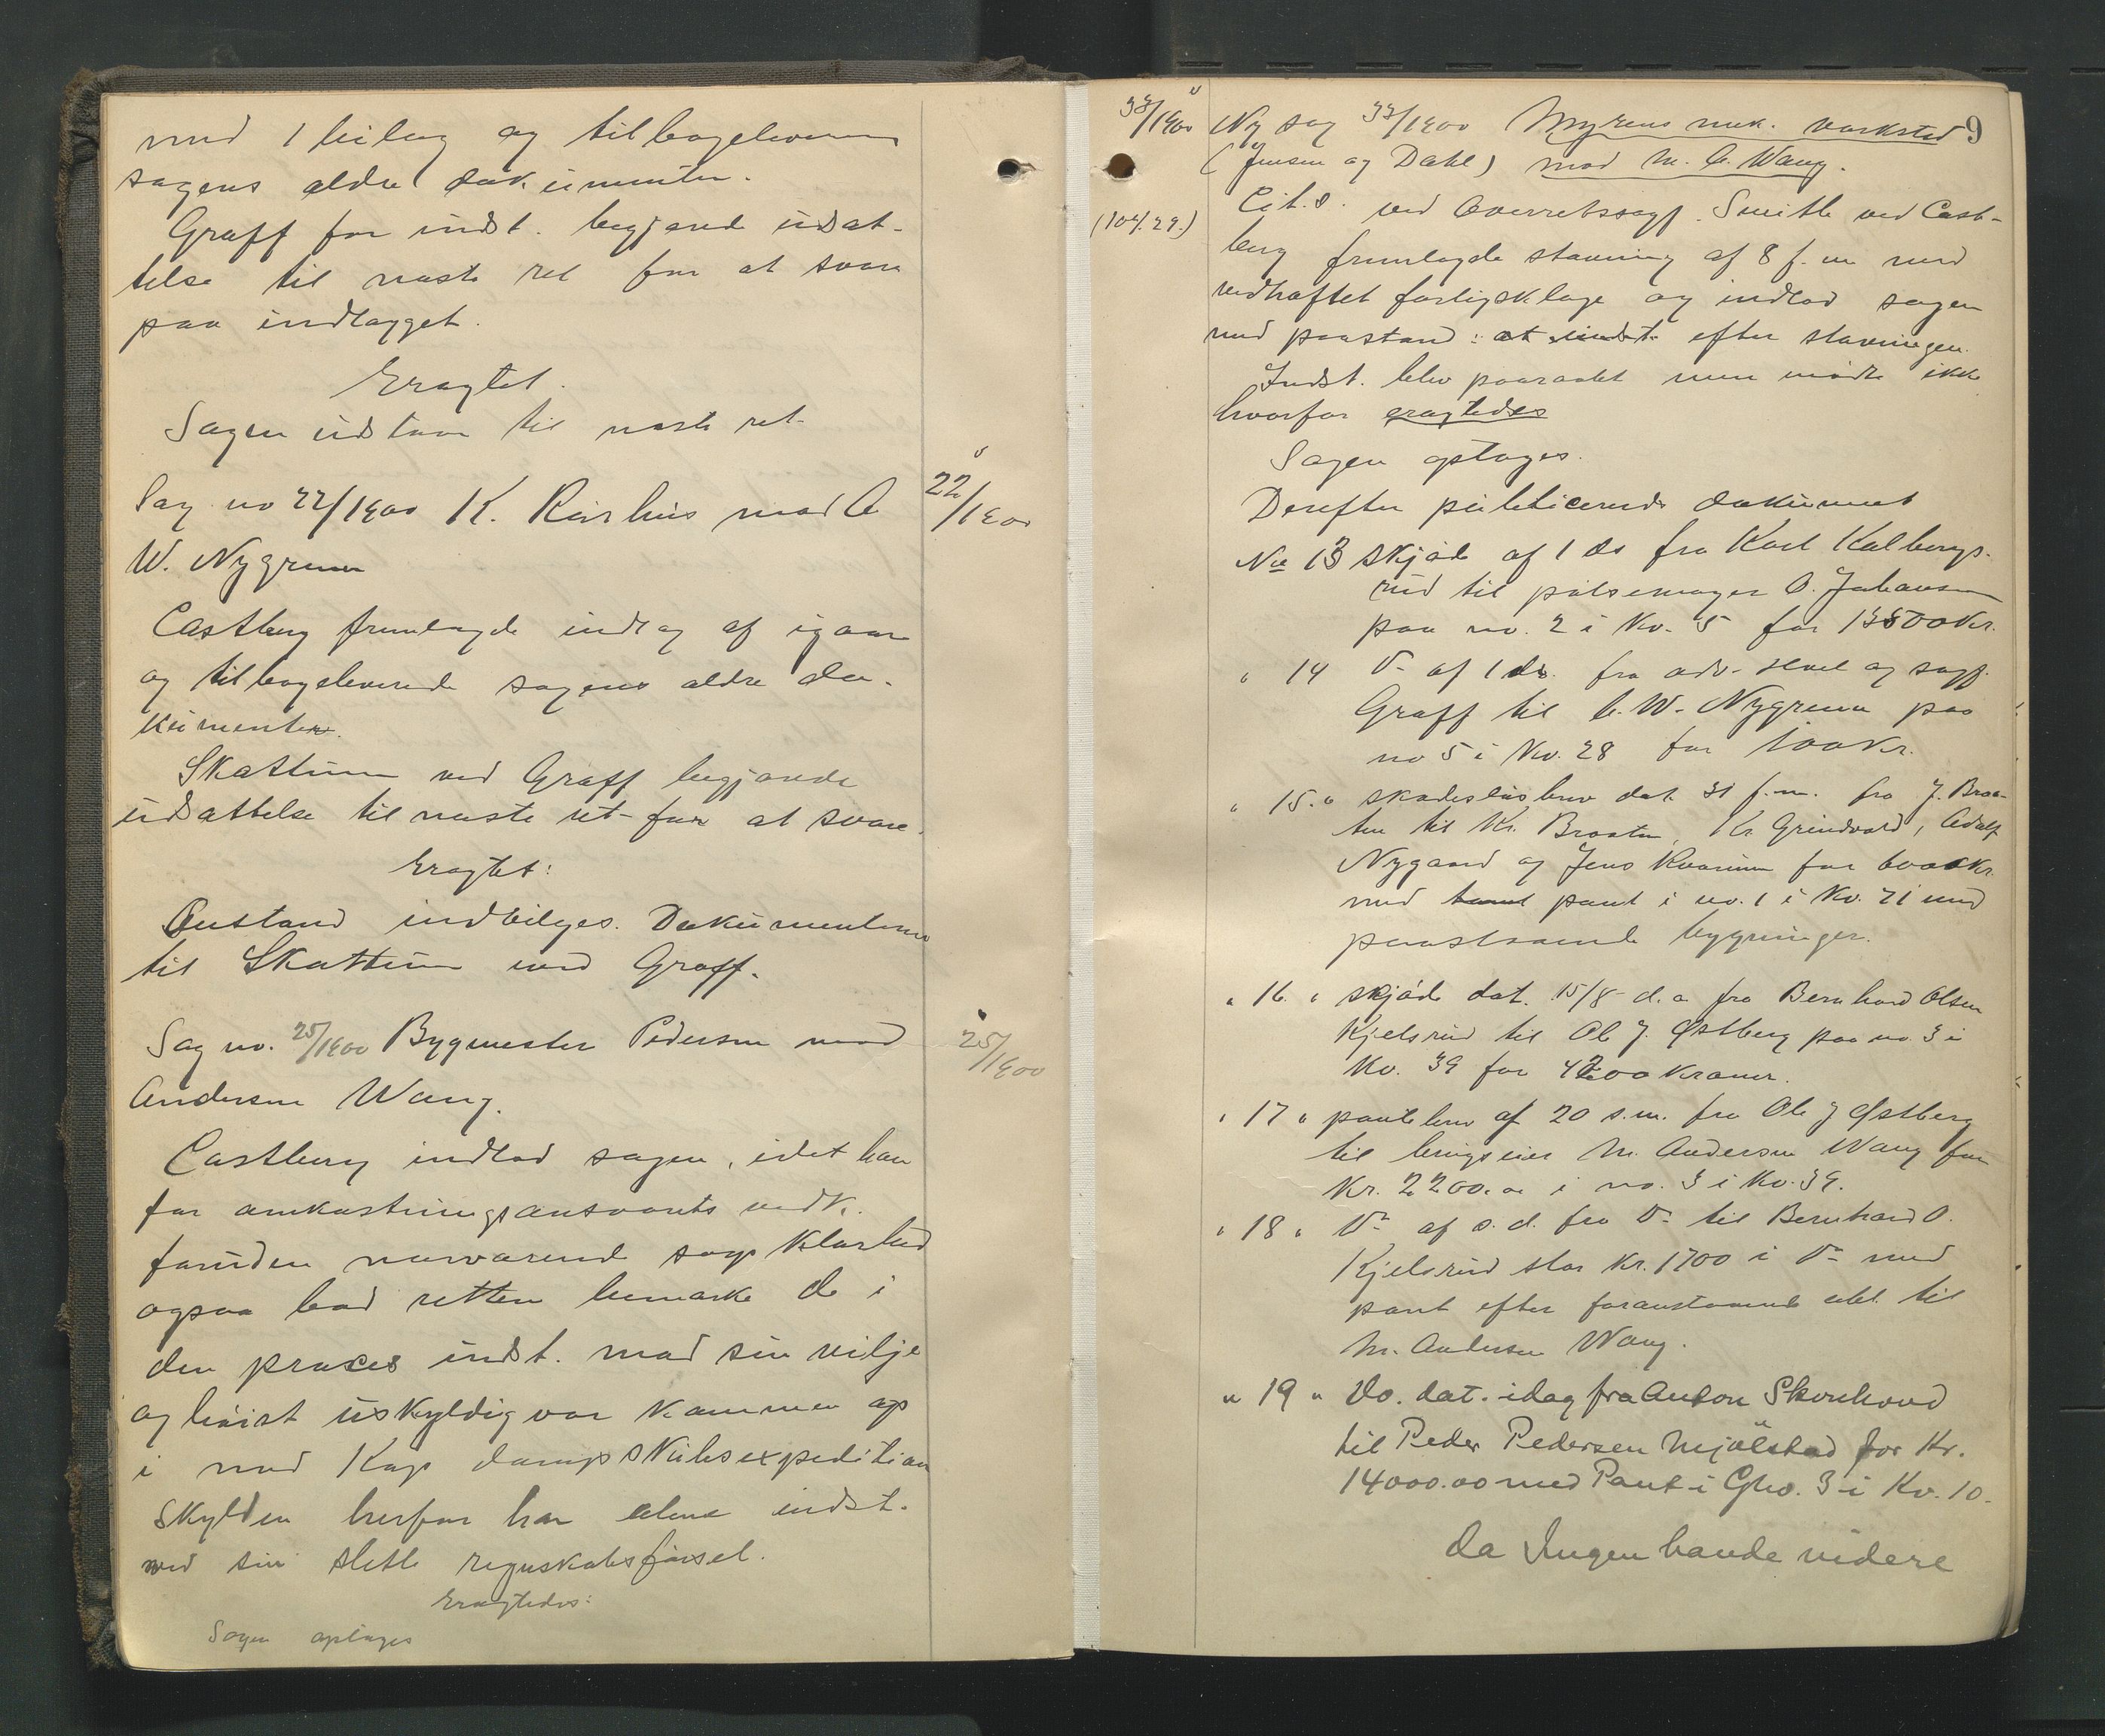 med 1 bilag og tilbageleverede
sagens ældre dokumenter.
Graff for indst. begjærede udsæt-
telse til næste ret for at svare
paa indlægget.
Eragtet.
Sagen udstaar til næste ret.
Sag no 22/1900 K. Rúshus mod C
W. Nygreen
Castberg fremlagde indlæg af igaar
og tilbageleverede sagens ældre do-
kumenter.
Skattum ved Graff begjærede
udsættelse til næste ret for at svare.
Eragtet:
Anstand indvilges. Dokumenterne
til Skattum ved Graff.
Sag no. 25/1900 Bygmester Pedersen mod
Andersen Wang.
Castberg indlod sagen, idet han
for omkostningsansvarets vedk.
foruden nærværende sags klarhed
ogsaa bad retten bemærke de i
den proces indst. mod sin vilje
og høist uskyldig var kommen op
i med Kap dampskibsexpedition
skylden herfor har alene indst.
ved sin slette regnskabsførsel.
Eragtedes:
Sagen optages
22/1900
25/1900
9
33/1900
Ny sag 33/1900 Myrens mek. værksted
(Jensen og Dahl) mod M. A. Wang.
(104.29.)
Cit.s. ved Overretssagf. Smith ved Cast-
berg fremlagde stævning af 8 f. m med
vedhæftet forligsklage og indlod sagen
med paastand: at indst. efter stævningen.
Indst. blev paaraabt men mødte ikke
hvorfor eragtedes
Sagen optages.
Derefter publiceredes dokument
No 13 skjøde af 1 ds fra Karl Kalbergs-
rud til pølsemager O. Johansen
paa no. 2 i Kv. 5 for 13500 Kr.
" 14 Do af 1 ds. fra adv. og sagf.
Graff til C. W. Nygreen paa
no 5 i Kv. 28 for 100 Kr.
" 15 " skadesløsbrev dat. 31 f.m. fra J. Braa-
ten til Kr. Braaten, Kr Grindvold, Adolf
Nygaard og Jens Kværum for 6000 Kr.
med pant i no. 1 i Kv. 21 med
paastaaende bygninger.
" 16 " skjøde dat. 15/8 d.a fra Bernhard Olsen
Kjelsrud til Ole J. Østberg paa no 3 i
Kv. 39 for 4200 kroner.
" 17 " pantebrev af 20 s.m. fra Ole J Østberg
til brugseier M. Andersen Wang for
Kr. 2200.00 i no. 3 i Kv. 39.
" 18 " Do af s.d. fra Do til Bernhard O.
Kjelsrud stor Kr. 1700 i Do med
pant efter foranstaaende obl. til
M. Andersen Wang.
" 19 " Do. dat. idag fra Anton Skonhovd
til Peder Pedersen Mjölstad for Kr.
14000.00 med Pant i Gno. 3 i Kv. 10.
Da Ingen havde videre